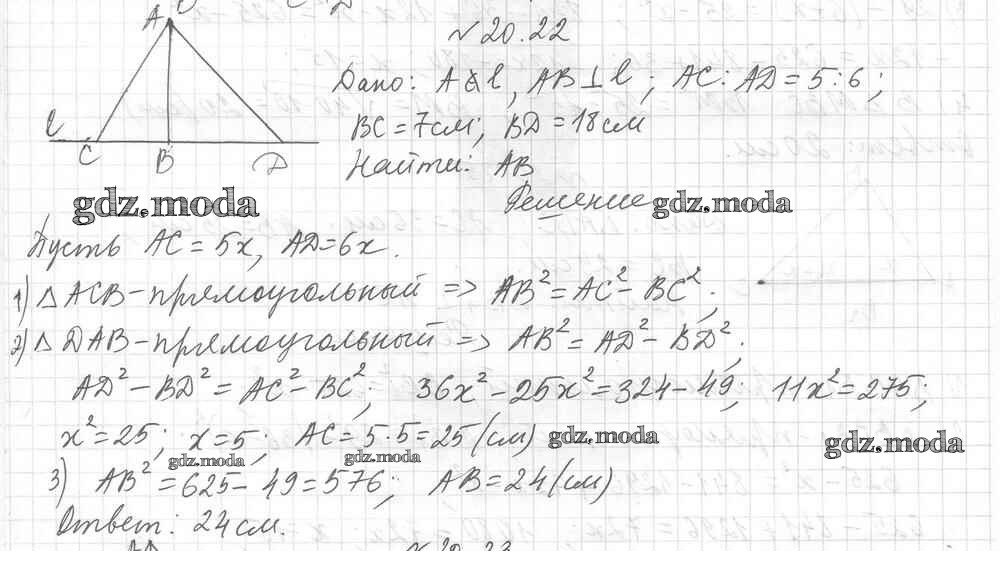 № 20.22
A
Дано: A ∉ l, AB ⊥ l; AC : AD = 5 : 6;
l C B D
BC = 7 см; BD = 18 см
Найти: AB
gdz.moda
Решение gdz.moda
Пусть AC = 5x, AD = 6x.
1) △ ACB - прямоугольный => AB² = AC² - BC²;
2) △ DAB - прямоугольный => AB² = AD² - BD²;
AD² - BD² = AC² - BC²; 36x² - 25x² = 324 - 49; 11x² = 275;
x² = 25; x = 5; AC = 5·5 = 25 (см) gdz.moda gdz.moda
gdz.moda gdz.moda
3) AB² = 625 - 49 = 576; AB = 24 (см)
Ответ: 24 см.